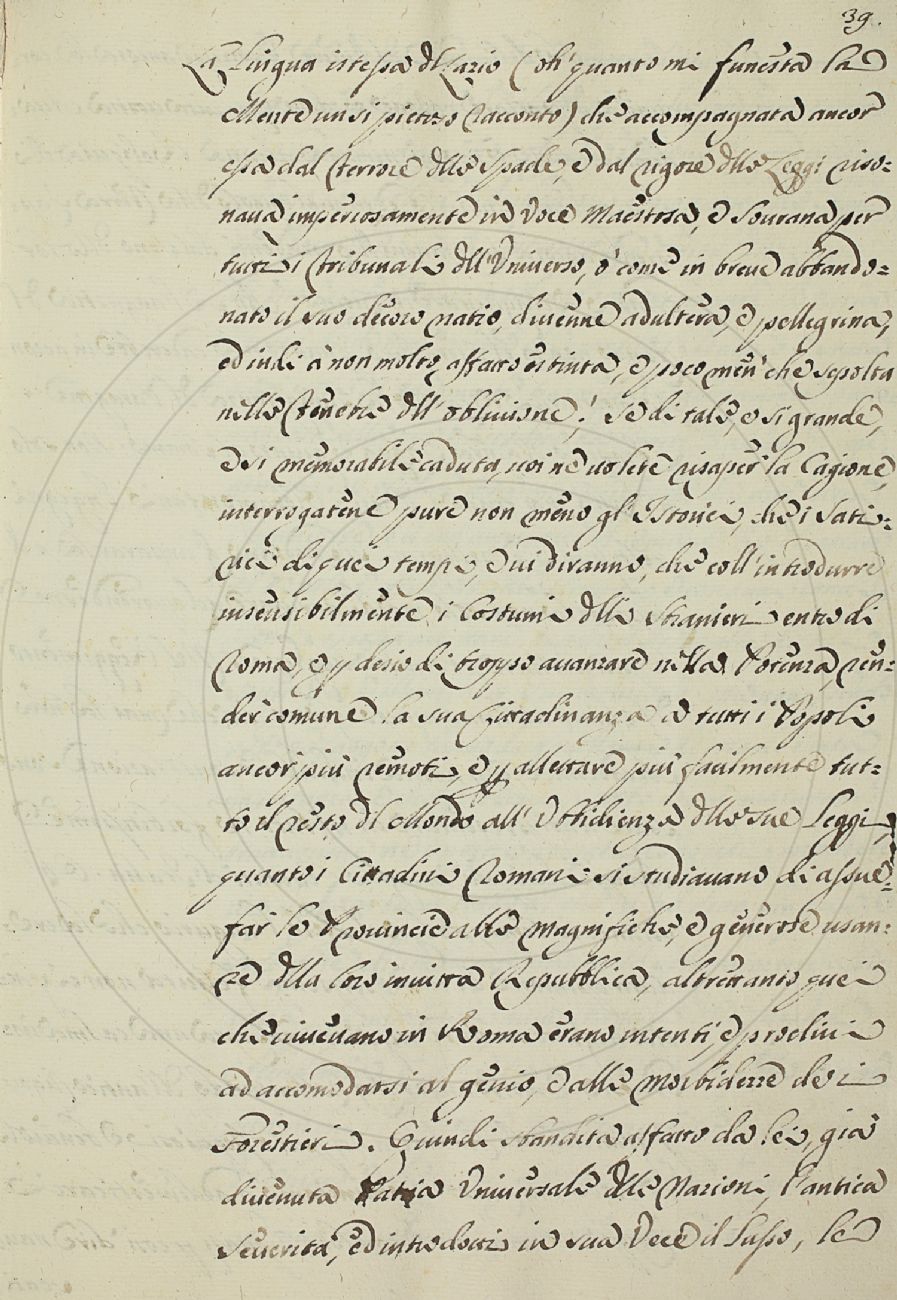 39.
La Lingua istessa dl Lazio (oh' quanto mi funesta la
Mente un si pietoso racconto) che accompagnata ancor
essa dal terrore dlle Spade, e dal rigore dlle Leggi riso=
naua imperiosamente in Voce Maestosa, e Sourana per
tutti i Tribunali dll'Vniverso, o' come in breue abbando=
nato il suo decoro natio, diuenne adultera, e pellegrina,
ed indi à non molto affatto estinta, e poco men' che sepolta
nelle Tenebre dll' obliuione! Se di tale, e si grande,
e si memorabile caduta, uoi ne uolete risaper' la Cagione,
interrogatene pure non meno gl' Istorici, che i Sati=
rici di quei tempi, e ui diranno, che coll' introdurre
insensibilmente i Costumi dlli Stranieri entro di
Roma, e p desio di troppo auanzare nella Potenza, ren=
der' comune la sua Cittadinanza à tutti i Popoli
ancor' più remoti, e p allettare più facilmente tut=
to il resto dl Mondo all' Vbbidienza dlle sue Leggi,
quanto i Cittadini Romani si studiauano di assue=
far le Prouincie alle magnifiche, e generose usan=
ze dlla loro inuitta Repubblica, altrettanto quei
che uiueuano in Roma erano intenti, e procliui
ad accomodarsi al genio, e alle morbidezze dei
Forestieri. Quindi sbandita affatto da lei, già
diuenuta Patria Vniuersale dlle Nazioni, l'antica
Seuerità, ed introdotti in sua Vece il Lusso, le